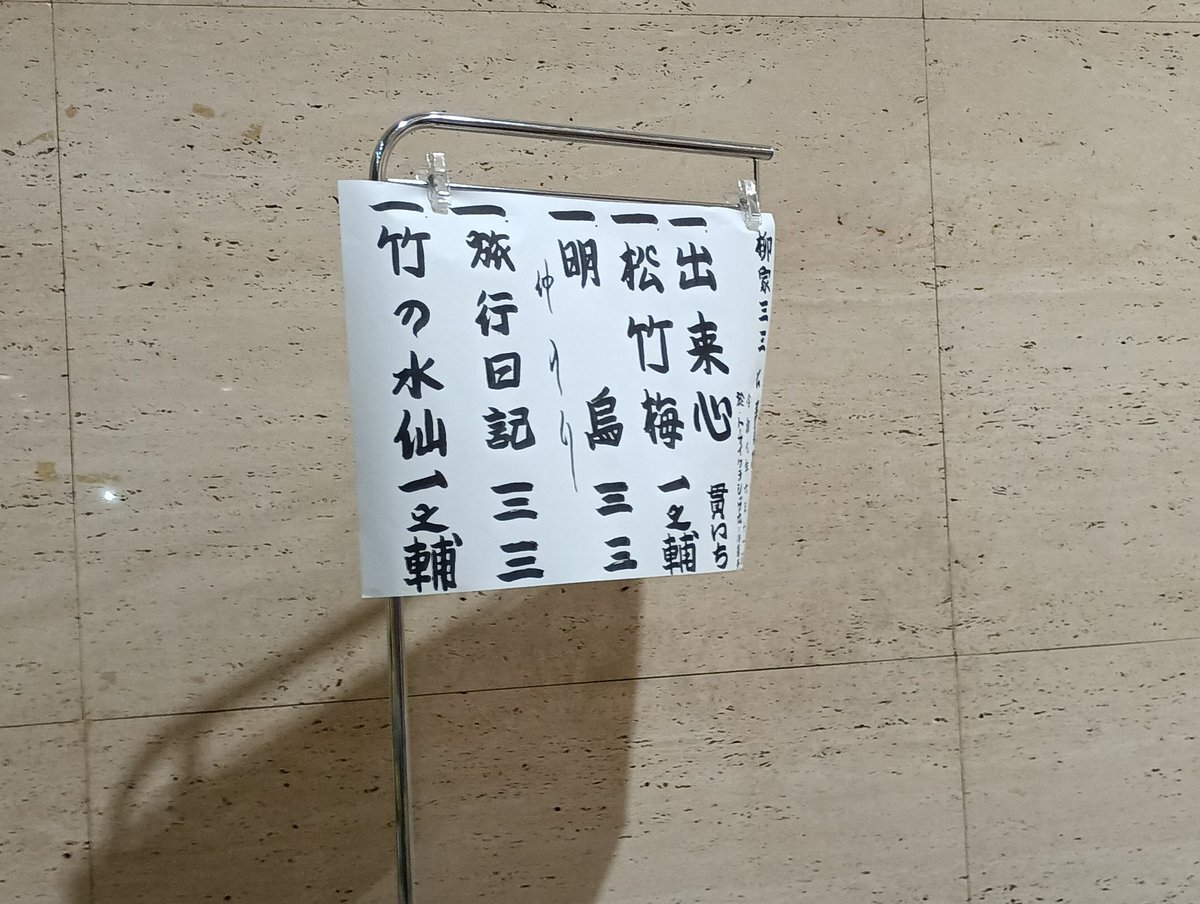 柳家三三
一 出来心 貫いち
一 松竹梅 一之輔
一 明烏 三三
仲入り
一 旅行日記 三三
一 竹の水仙 一之輔